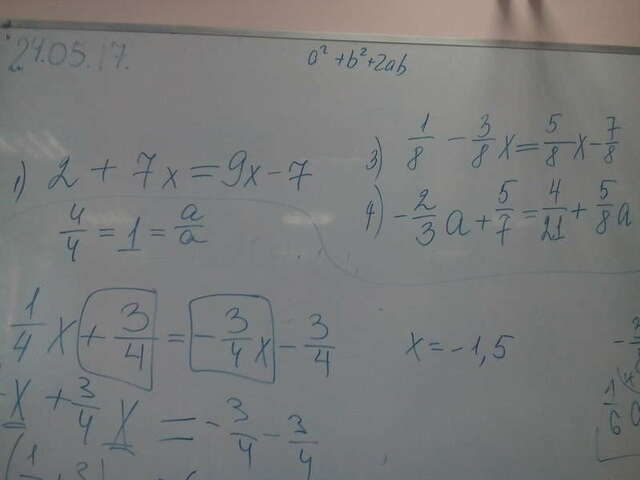 24.05.17.
a² + b² + 2ab
1) 2 + 7x = 9x - 7
4/4 = 1 = a/a
3) 1/8 - 3/8 x = 5/8 x - 7/8
4) -2/3 a + 5/7 = 4/21 + 5/8 a
1/4 x + 3/4 = -3/4 x - 3/4
x = -1,5
x + 3/4 x = -3/4 - 3/4